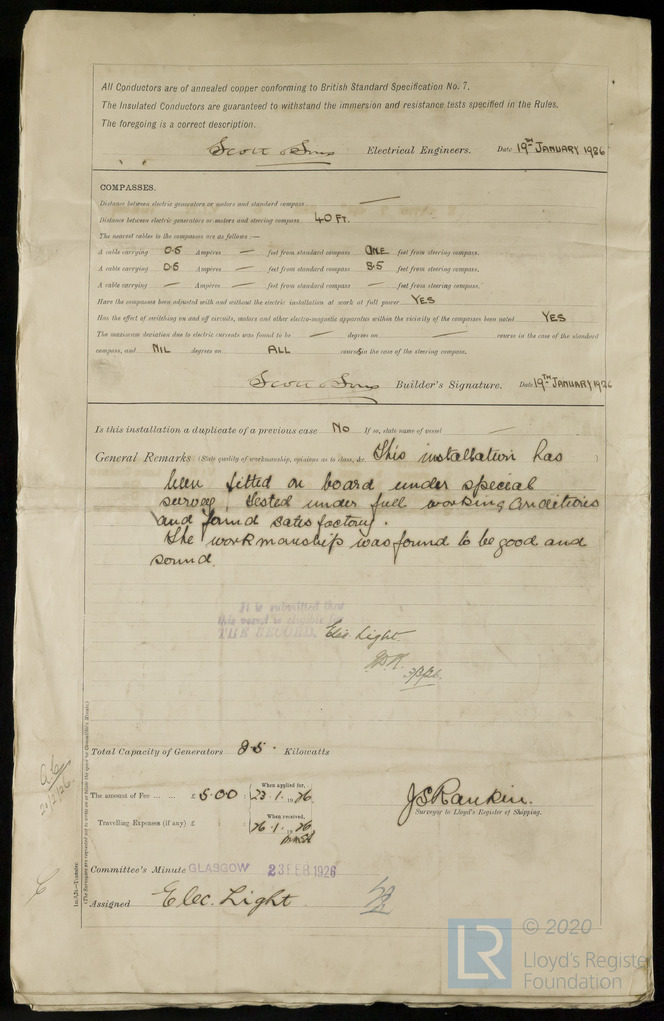 All Conductors are of annealed copper conforming to British Standard Specification No. 7.
The Insulated Conductors are guaranteed to withstand the immersion and resistance tests specified in the Rules.
The foregoing is a correct description.
Scott & Sons Electrical Engineers. Date 19TH JANUARY 1926
COMPASSES.
Distance between electric generators or motors and standard compass —
Distance between electric generators or motors and steering compass 40 FT.
The nearest cables to the compasses are as follows:—
A cable carrying 0.5 Ampères — feet from standard compass ONE feet from steering compass.
A cable carrying 0.5 Ampères — feet from standard compass 8.5 feet from steering compass.
A cable carrying — Ampères — feet from standard compass — feet from steering compass.
Have the compasses been adjusted with and without the electric installation at work at full power YES
Has the effect of switching on and off circuits, motors and other electro-magnetic apparatus within the vicinity of the compasses been noted YES
The maximum deviation due to electric currents was found to be — degrees on — course in the case of the standard
compass, and NIL degrees on ALL courses in the case of the steering compass.
Scott & Sons Builder's Signature. Date 19TH JANUARY 1926
Is this installation a duplicate of a previous case No If so, state name of vessel —
General Remarks (State quality of workmanship, opinions as to class, &c. This installation has
been fitted on board under special
survey, tested under full working conditions
and found satisfactory.
The workmanship was found to be good and
sound.
It is submitted that
this vessel is eligible for
THE RECORD. Elec Light
Total Capacity of Generators 8.5 Kilowatts
The amount of Fee ... ... £ 5.00 When applied for, 23.1.1926
Travelling Expenses (if any) £ When received, 26.1.1926
J S Rankin.
Surveyor to Lloyd's Register of Shipping.
Committee's Minute GLASGOW 23 FEB 1926
Assigned Elec. Light
© 2020
LR Lloyd's Registe
Foundation